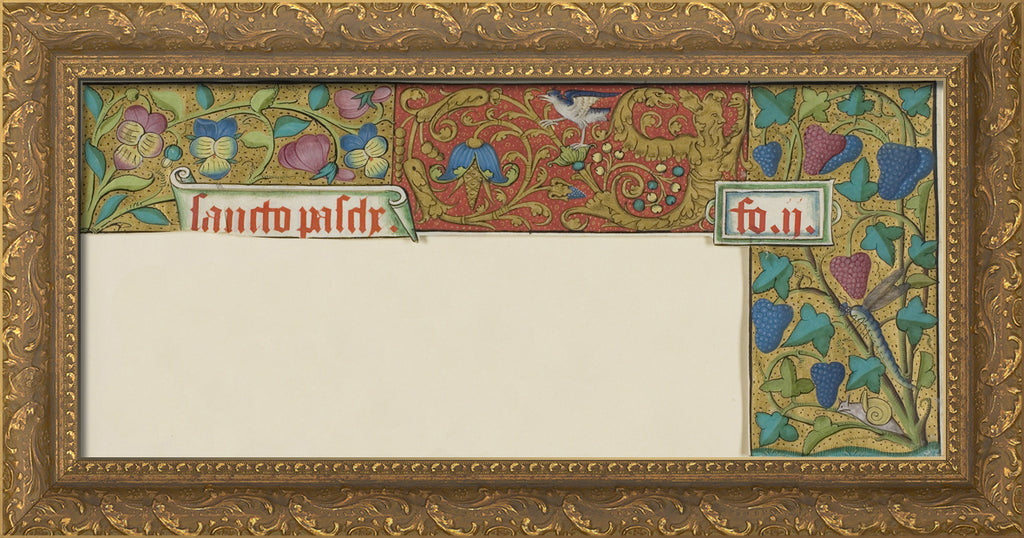 sancto pasch.
fo. ij.